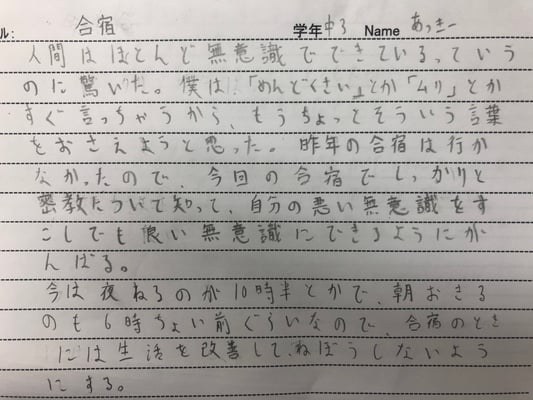 ル: 合宿 学年 中3 Name あつきー
人間はほとんど無意識でできているっていう
のに驚いた。僕は「めんどくさい」とか「ムリ」とか
すぐ言っちゃうから、もうちょっとそういう言葉
をおさえようと思った。昨年の合宿は行か
なかったので、今回の合宿でしっかりと
密教について知って、自分の悪い無意識をす
こしでも良い無意識にできるようにが
んばる。
今は夜ねるのが10時半とかで、朝おきる
のも6時ちょい前ぐらいなので、合宿のとき
には生活を改善して、ねぼうしないよう
にする。